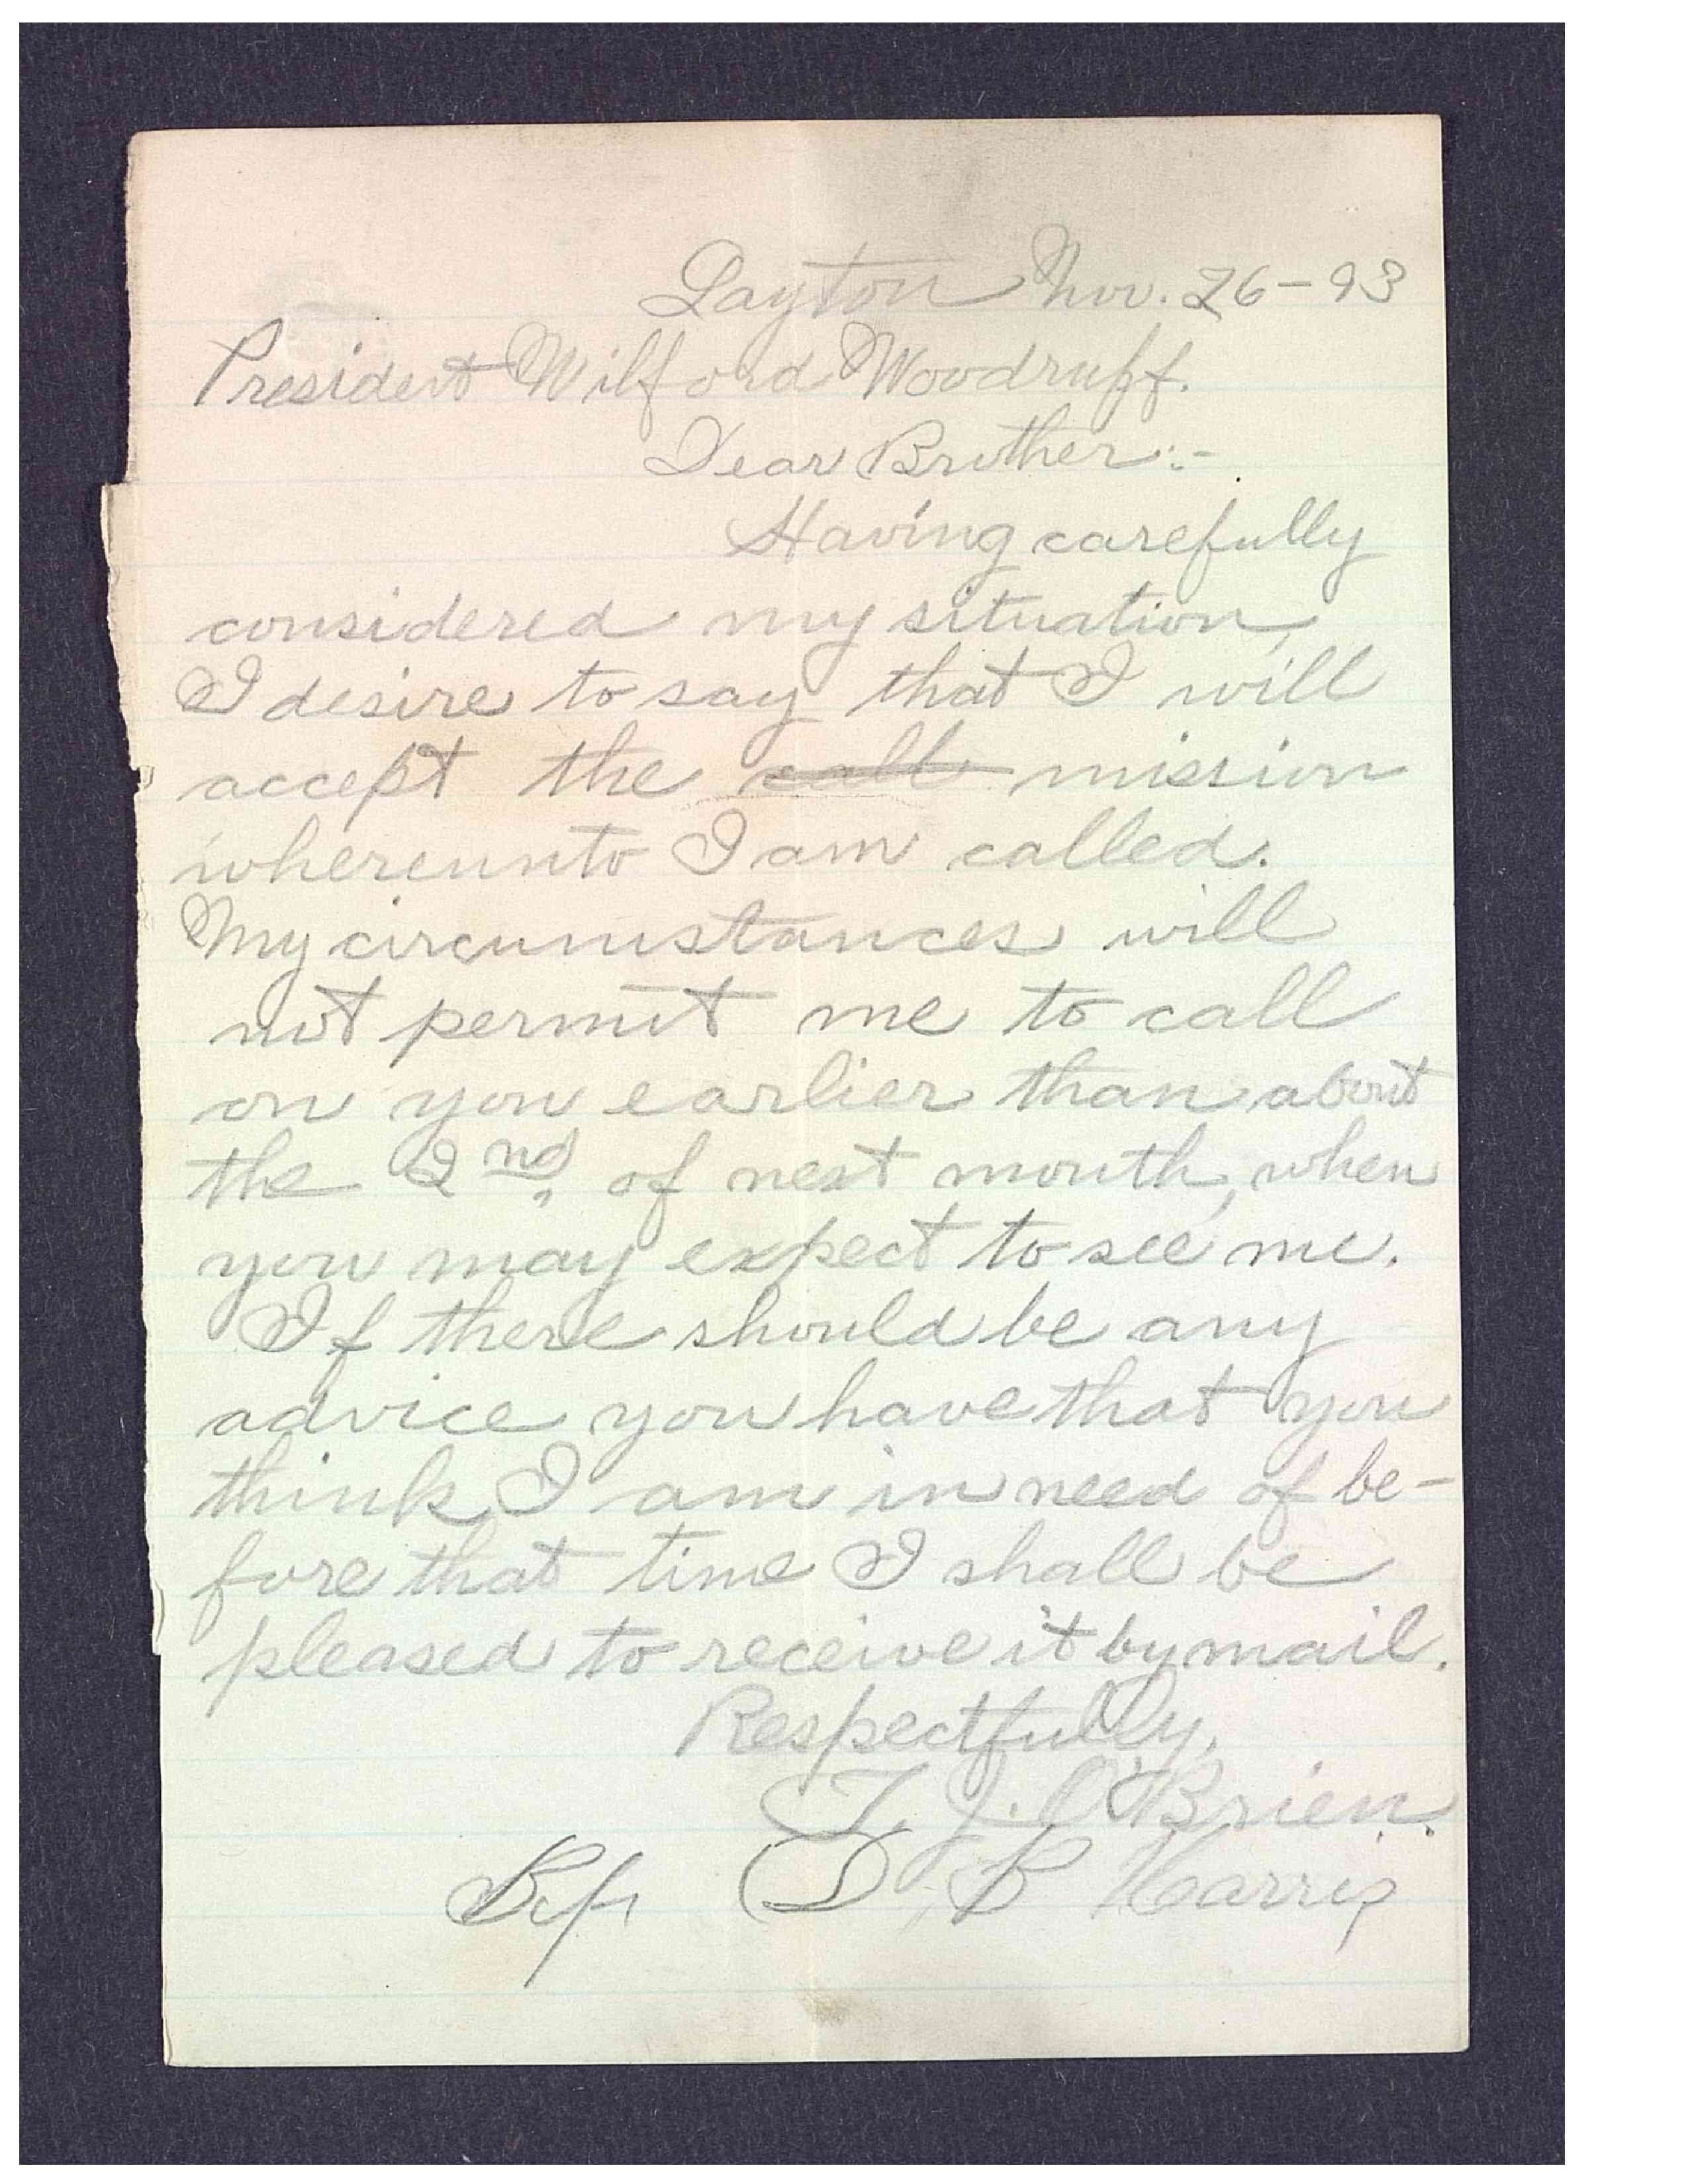 Layton Nov. 26-93
President Wilford Woodruff.
Dear Brother:-
Having carefully
considered my situation,
I desire to say that I will
accept the call mission
whereunto I am called.
My circumstances will
not permit me to call
on you earlier than about
the 2nd. of next month, when
you may expect to see me.
If there should be any
advice you have that you
think I am in need of be-
fore that time I shall be
pleased to receive it by mail.
Respectfully,
T. J. O'Brien.
Bp D. B Harris